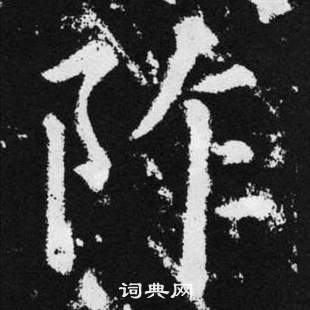 阼
词典网